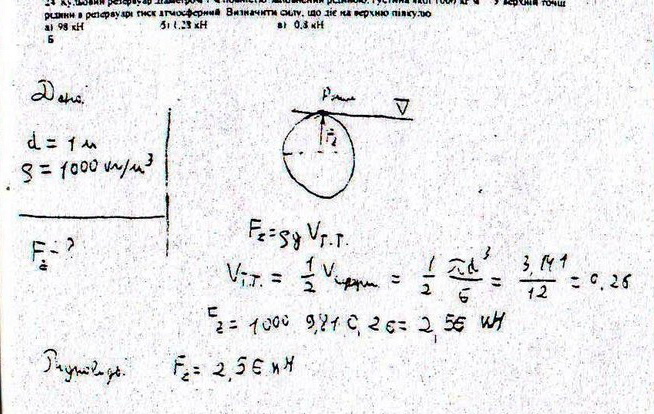 24 Кульовий резервуар діаметром 1 м повністю заповнений рідиною, густина якої 1000 кг/м³ У верхній точці
рідини в резервуарі тиск атмосферний. Визначити силу, що діє на верхню півкулю
а) 98 кН б) 1,28 кН в) 0,8 кН
Б
Дано:
d = 1 м
ρ = 1000 кг/м³
F_z - ?
Pатм
F_z
F_z = ρg V_т.т.
V_т.т. = 1/2 V = 1/2 πd³/6 = 3,14·1/12 = 0,26
F_z = 1000 9,81 0,26 = 2,56 кН
F_z = 2,56 кН